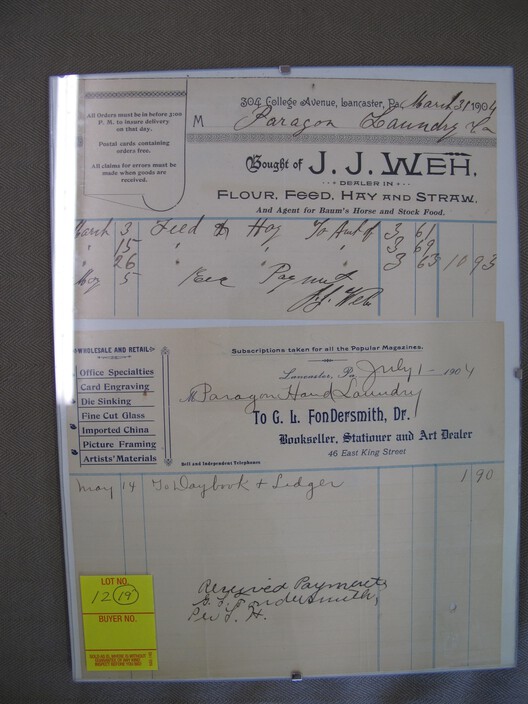 304 College Avenue, Lancaster, Pa, March 31 1904
All Orders must be in before 3:00
P. M. to insure delivery
on that day.
Postal cards containing
orders free.
All claims for errors must be
made when goods are
received.
M Paragon Laundry Co
Bought of J. J. WEH,
DEALER IN
FLOUR, FEED, HAY AND STRAW,
And Agent for Baum's Horse and Stock Food.
March 3 Feed & Hay To Amt of 3 61
" 15 " " " 3 69
" 26 " " " 3 63 10 93
May 5 Rec Payment
J. J. Weh
WHOLESALE AND RETAIL
Office Specialties
Card Engraving
Die Sinking
Fine Cut Glass
Imported China
Picture Framing
Artists' Materials
Subscriptions taken for all the Popular Magazines.
Lancaster, Pa., July 1 - 1904
M Paragon Hand Laundry
To G. L. FonDersmith, Dr.
Bookseller, Stationer and Art Dealer
46 East King Street
Bell and Independent Telephones
May 14 To Daybook + Ledger 1 90
Received Payment
G. L. Fondersmith,
Per L. H.
LOT NO.
12 19
BUYER NO.